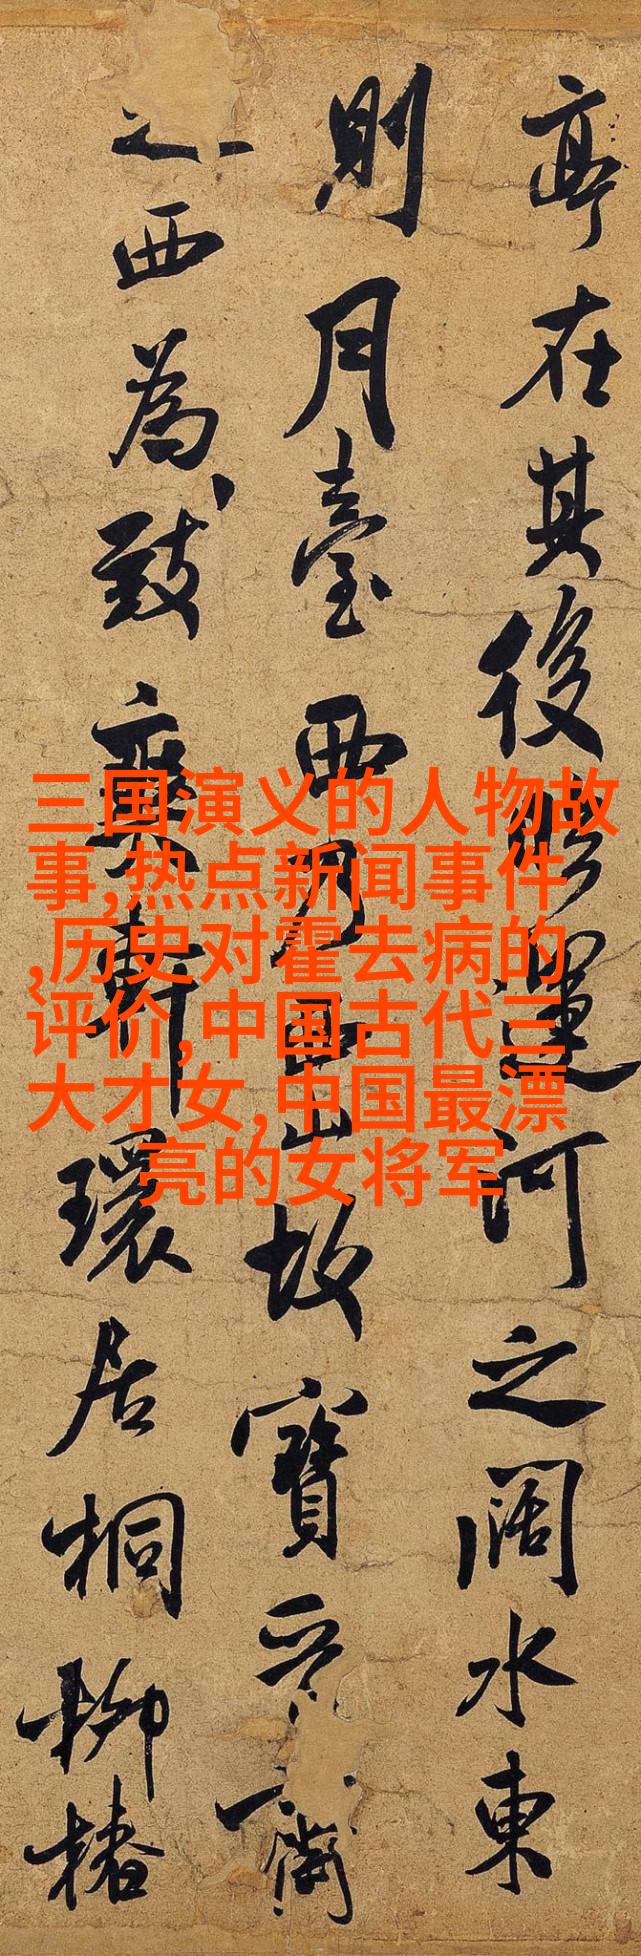 亭在其後臨運河之闊水東
則月臺西乃西山故寶晉齋
之西為致爽軒環居桐柳椿
三国演义的人物故
事,热点新闻事件
,历史对霍去病的
评价,中国古代三
大才女,中国最漂
亮的女将军